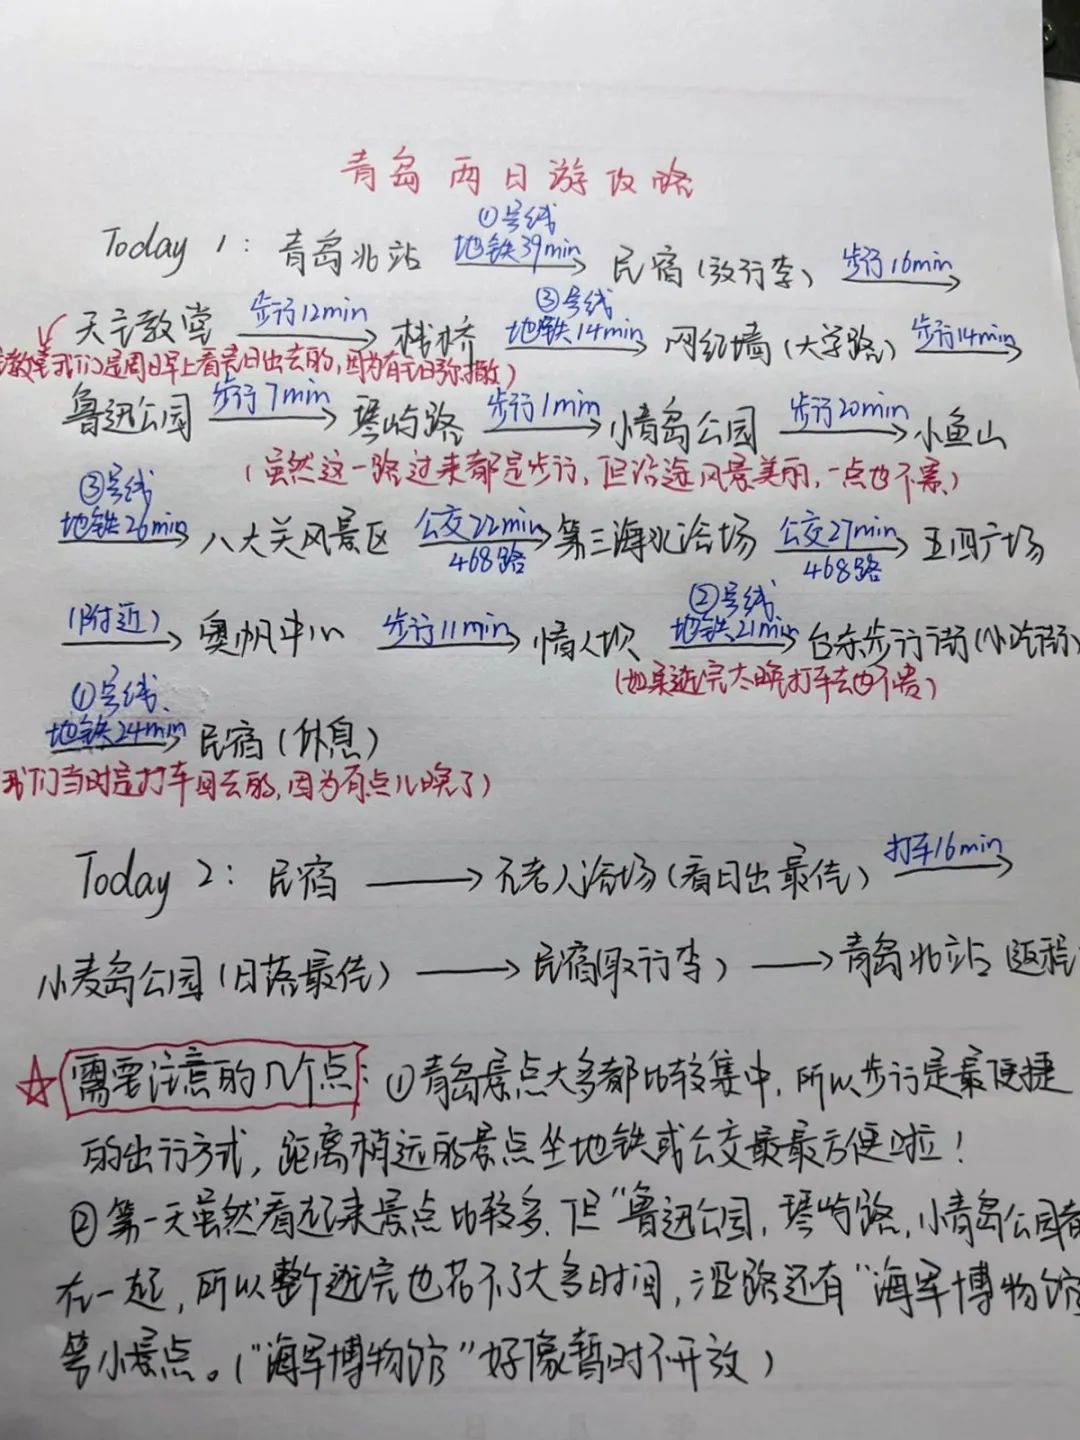 青岛两日游攻略
①号线
Today 1: 青岛北站 地铁39min 民宿(放行李) 步行16min
③号线
天主教堂 步行12min 栈桥 地铁14min 网红墙(大学路) 步行14min
教堂我们是周日早上看完日出去的,因为有主日弥撒)
鲁迅公园 步行7min 琴屿路 步行1min 小青岛公园 步行20min 小鱼山
(虽然这一路过来都是步行,但沿途风景美丽,一点也不累)
③号线
地铁26min 八大关风景区 公交22min 第三海水浴场 公交27min 五四广场
468路 468路
②号线
(附近) 奥帆中心 步行11min 情人坝 地铁21min 台东步行街(小吃街)
(如果逛完太晚打车去也不贵)
①号线
地铁24min 民宿(休息)
我们当时是打车回去的,因为有点儿晚了)
Today 2: 民宿 石老人浴场(看日出最佳) 打车16min
小麦岛公园(日落最佳) 民宿(取行李) 青岛北站 返程
☆ 需要注意的几个点: ①青岛景点大多都比较集中,所以步行是最便捷
的出行方式,距离稍远的景点坐地铁或公交最最方便啦!
②第一天虽然看起来景点比较多,但"鲁迅公园,琴屿路,小青岛公园都
在一起,所以整个逛完也花不了太多时间,沿路还有"海军博物馆
等小景点。("海军博物馆"好像暂时不开放)